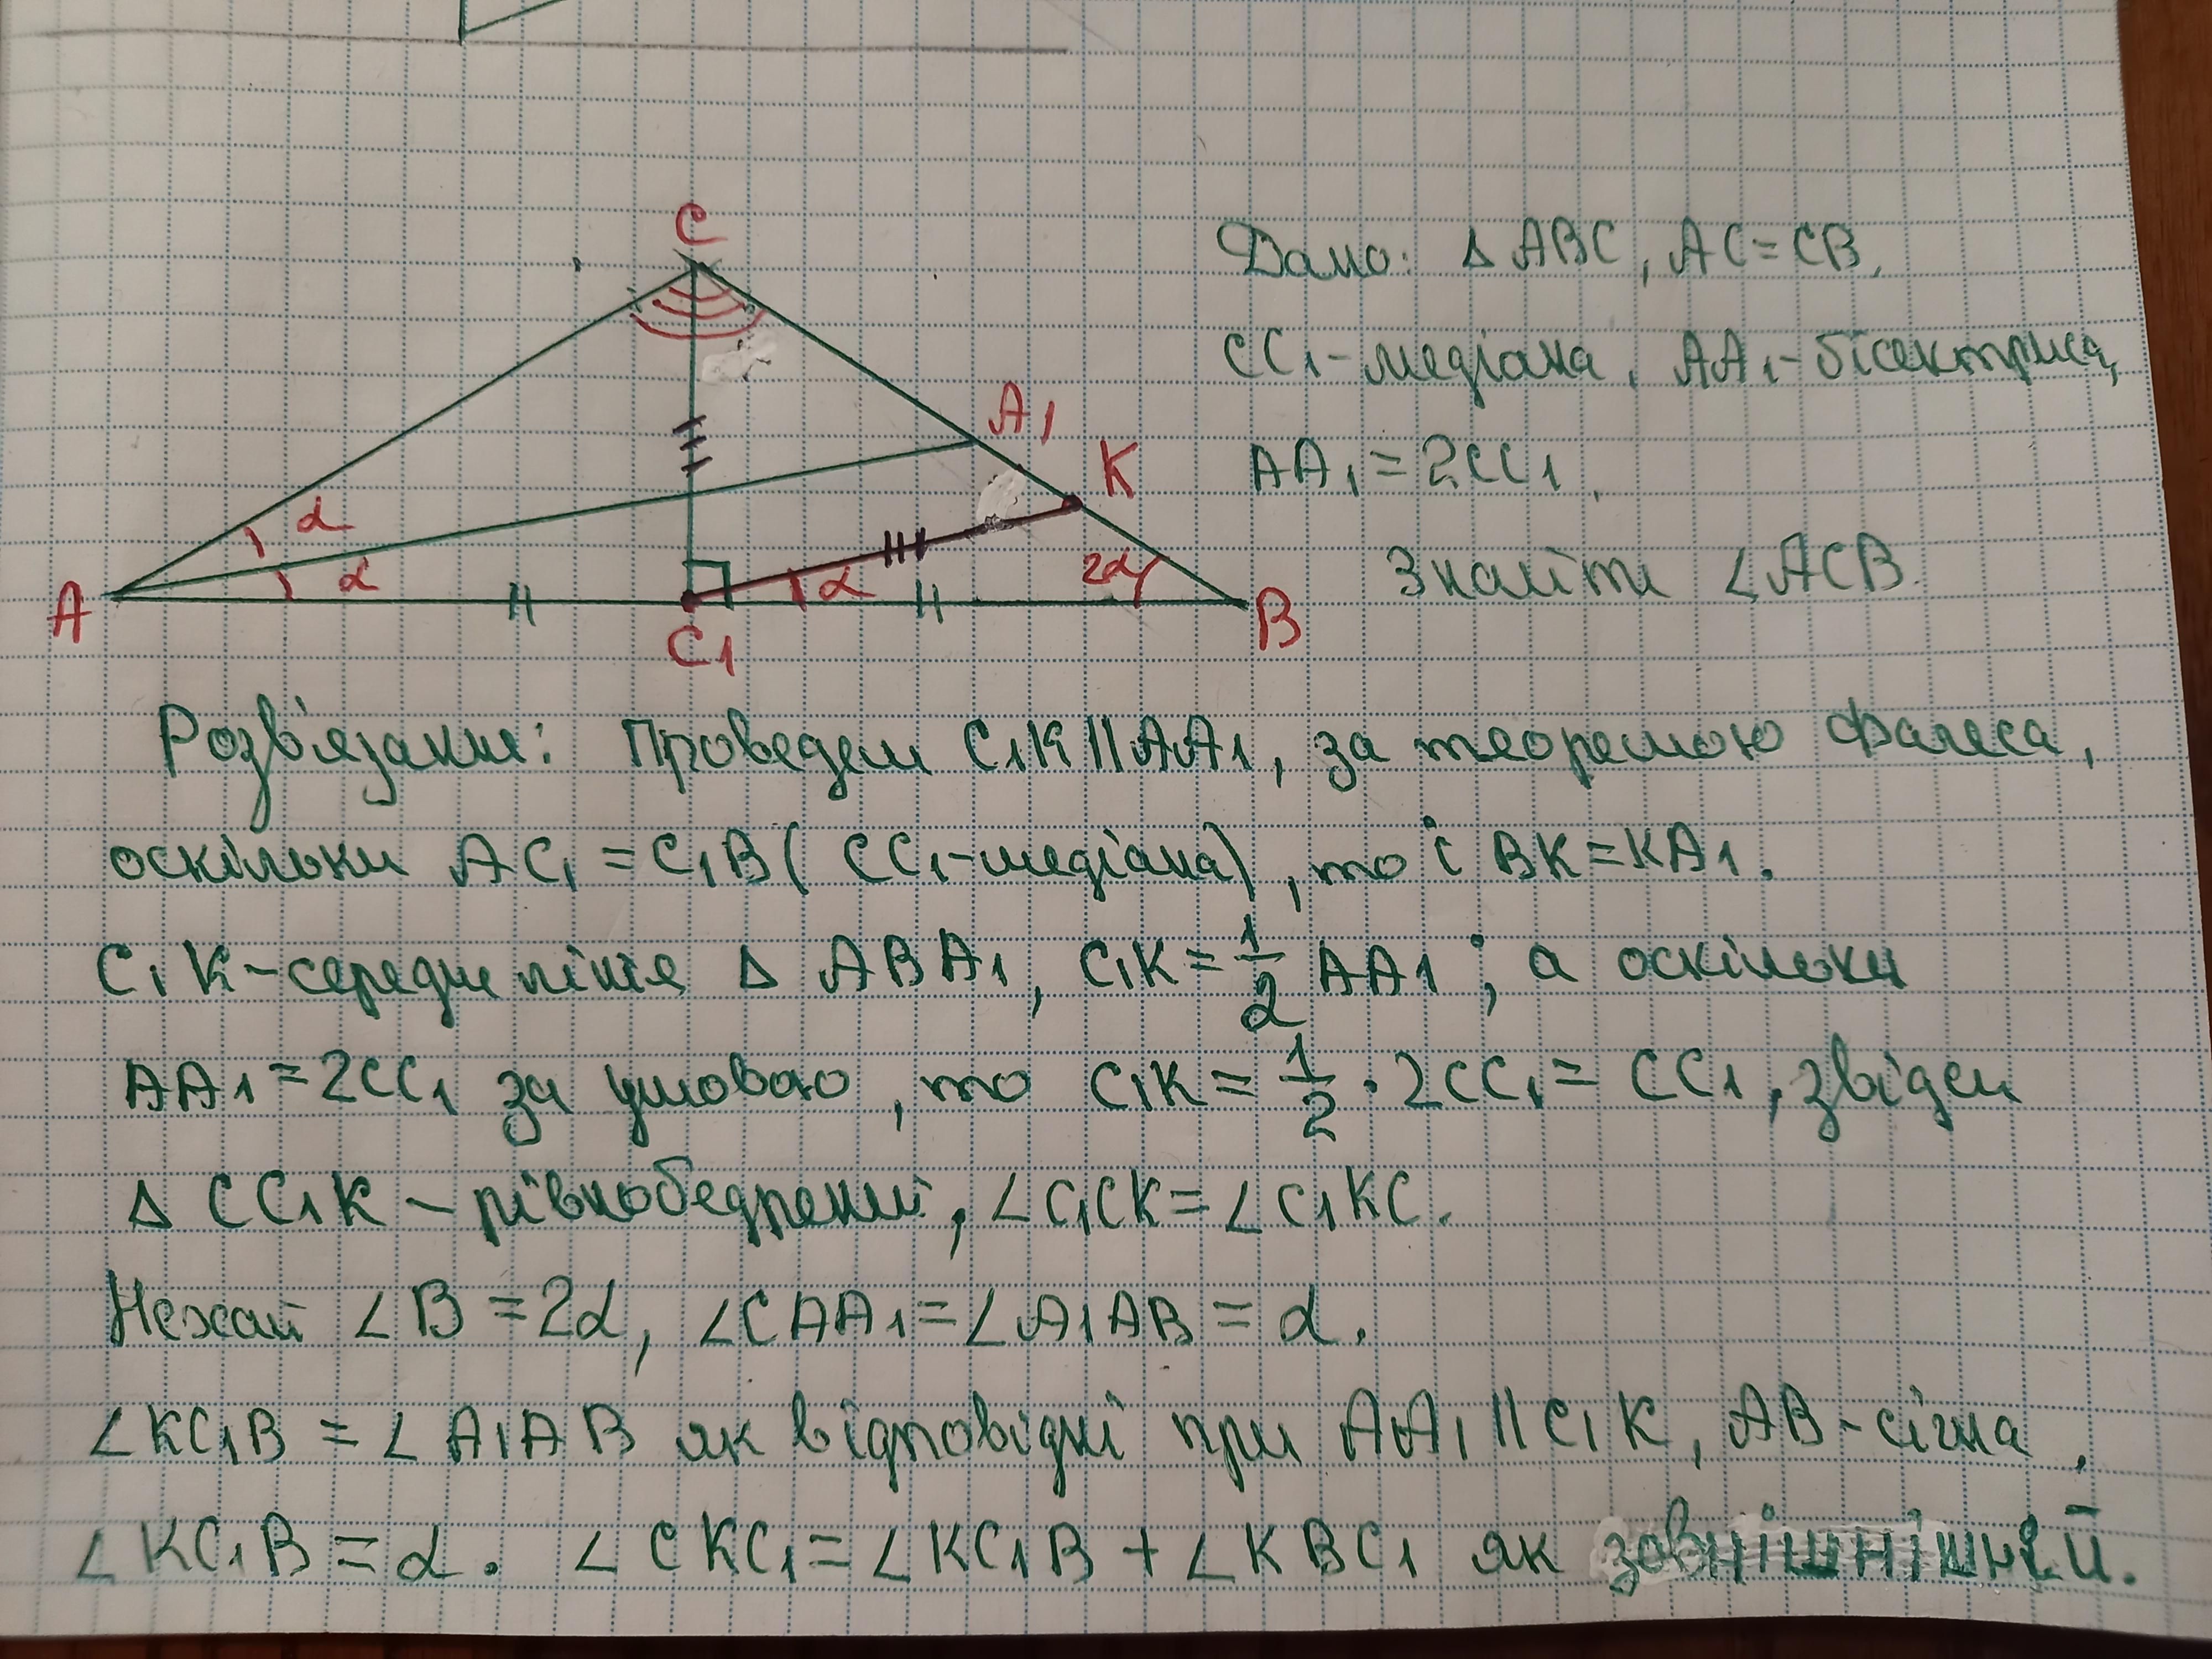 C
Дано: △ ABC, AC=CB,
CC₁-медіана, AA₁-бісектриса,
A₁
K
AA₁=2CC₁.
α
α
α
2α
Знайти ∠ACB.
A
C₁
B
Розв'язання: Проведем C₁K||AA₁, за теоремою Фалеса,
оскільки AC₁=C₁B( CC₁-медіана), то і BK=KA₁.
C₁K-середне лінія △ ABA₁, C₁K=1/2 AA₁; а оскільки
AA₁=2CC₁ за умовою, то C₁K=1/2·2CC₁=CC₁, звідси
△ CC₁K-рівнобедрений, ∠C₁CK=∠C₁KC.
Нехай ∠B=2α, ∠CAA₁=∠A₁AB=α.
∠KC₁B=∠A₁AB як відповідні при AA₁||C₁K, AB-січна,
∠KC₁B=α. ∠CKC₁=∠KC₁B+∠KBC₁ як зовнішнішній.